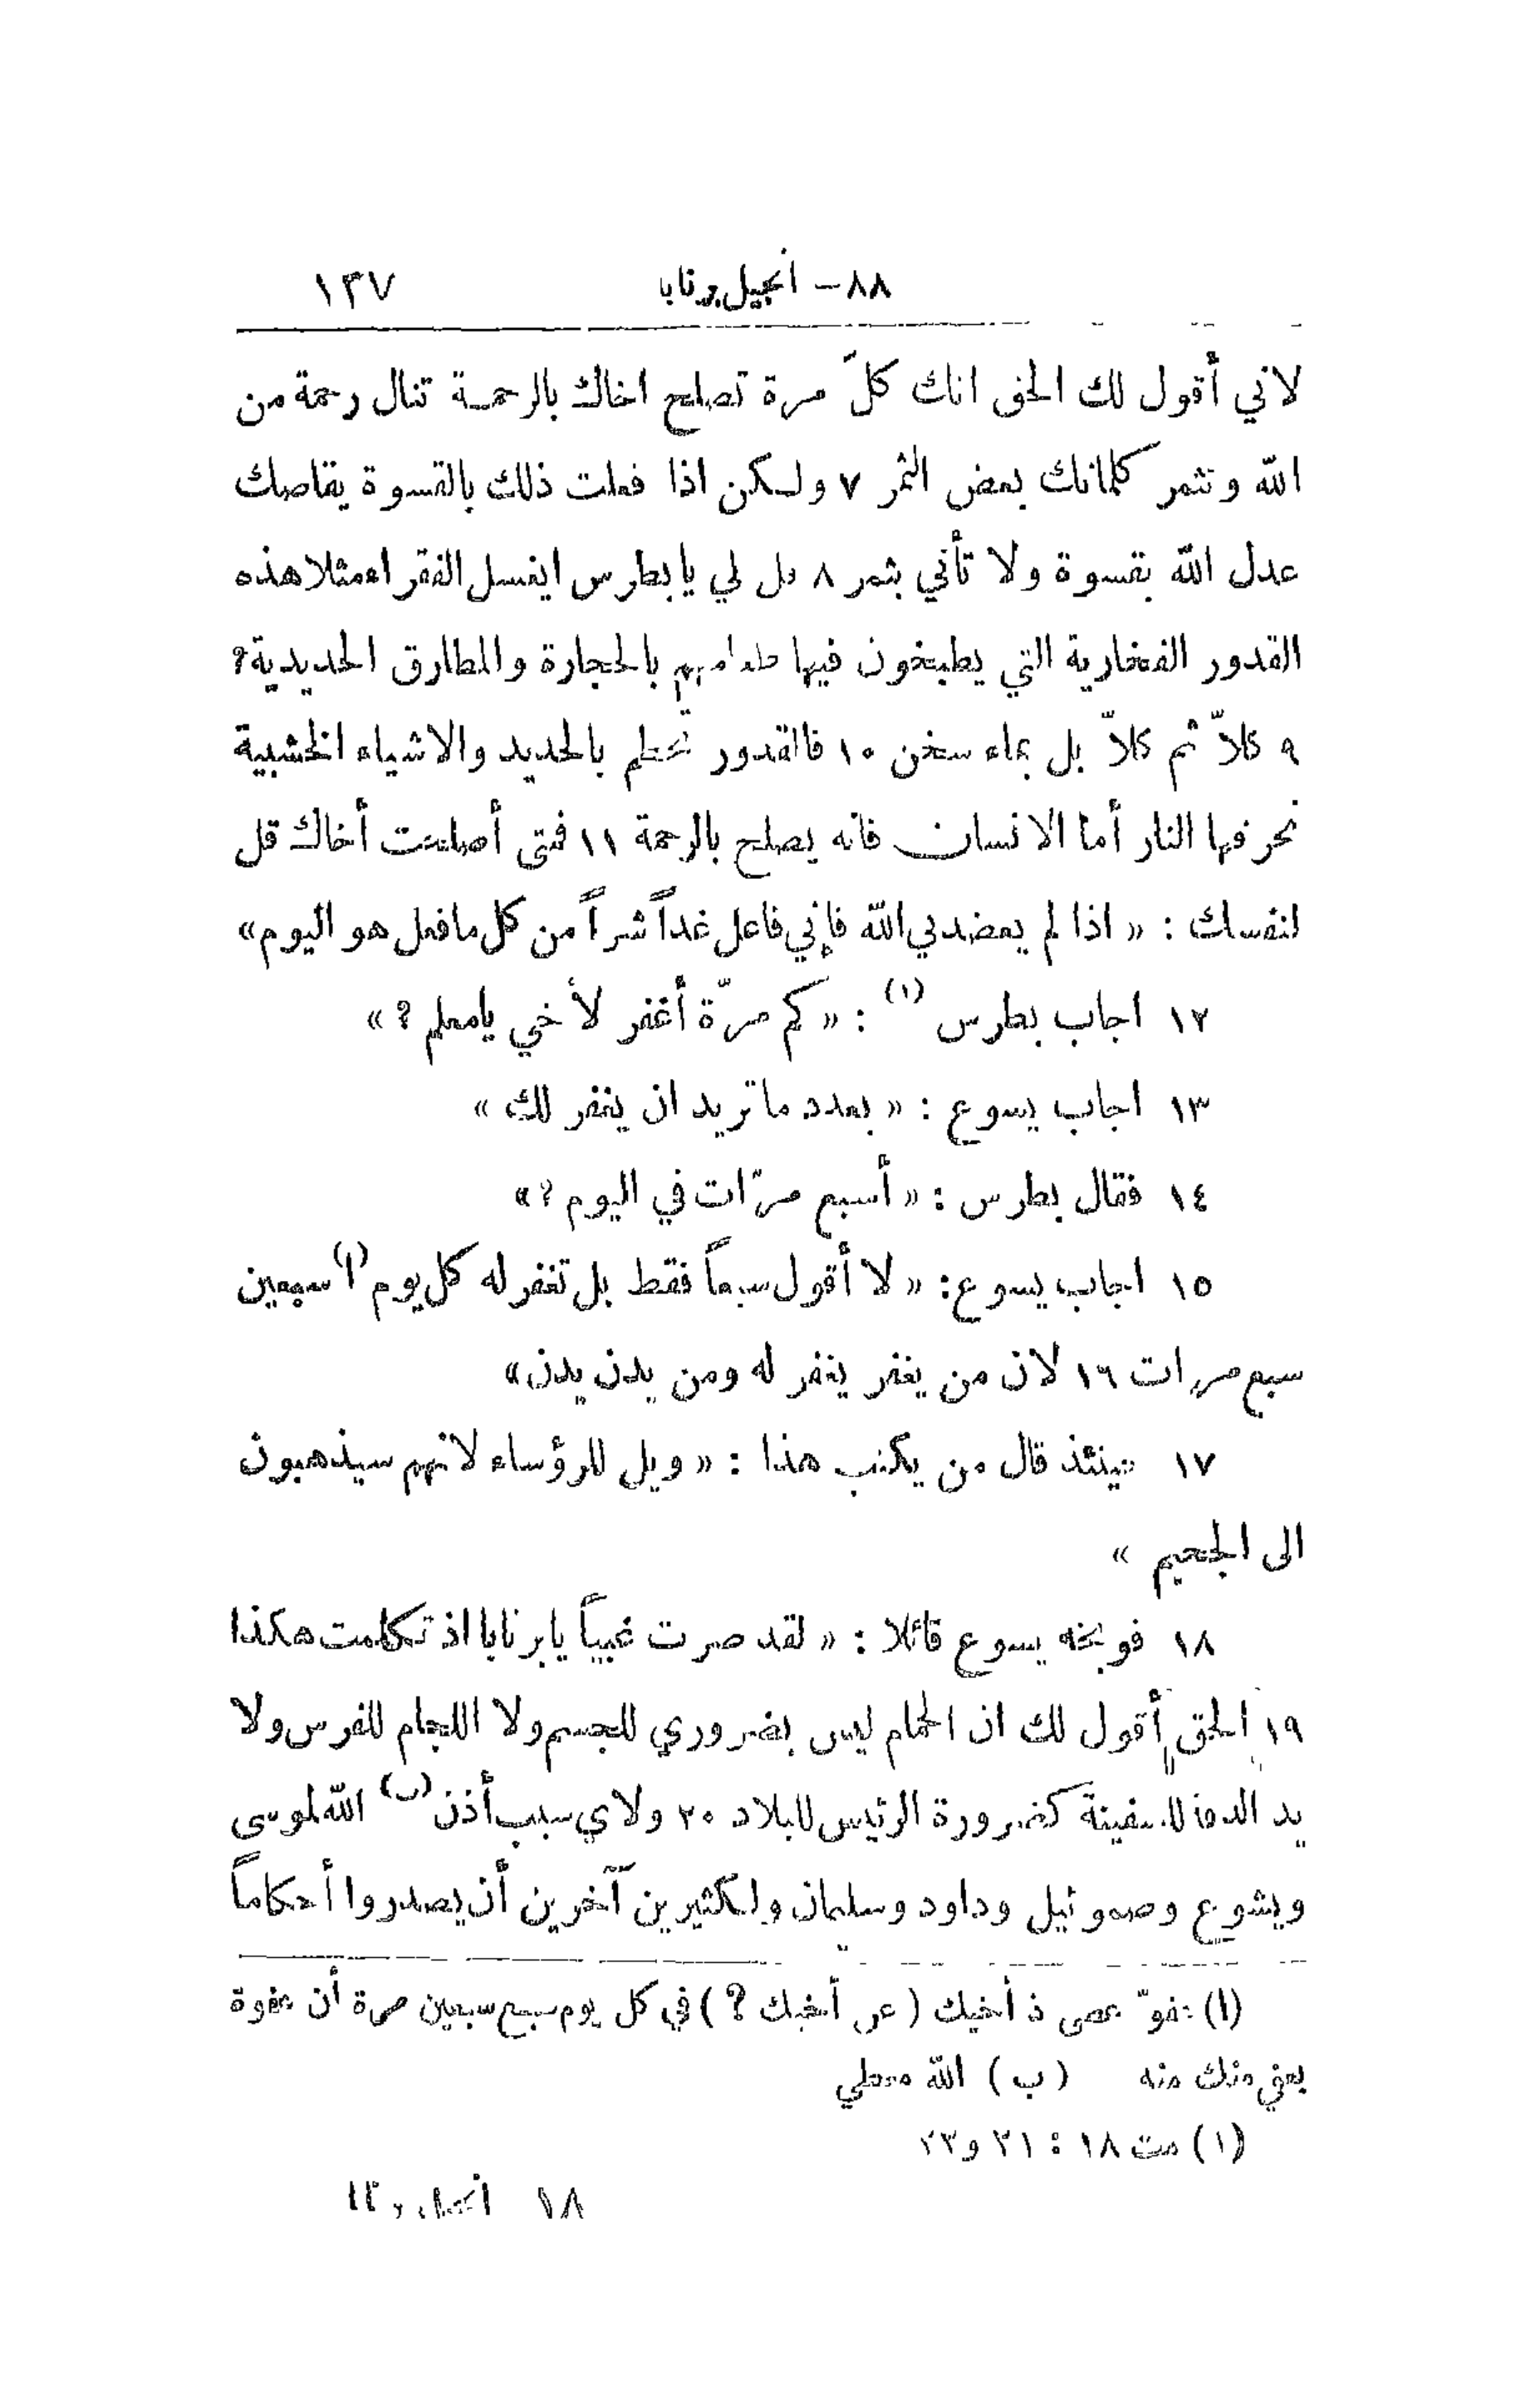 ٨٨ — انجيل برنابا ١٣٧
لاني أقول لك الحق انك كلَّ مرة تصلح اخاك بالرحمة تنال رحمة من
الله وتثمر كلماتك بعض الثمر ٧ ولكن اذا فعلت ذلك بالقسوة يقاصك
عدل الله بقسوة ولا تأتي بثمر ٨ قل لي يا بطرس ايغسل الفقراء مثلا هذه
القدور الفخارية التي يطبخون فيها طعامهم بالحجارة والمطارق الحديدية؟
٩ كلاّ ثم كلاّ بل بماء سخن ١٠ فالقدور تحطم بالحديد والاشياء الخشبية
تحرقها النار أما الانسان فانه يصلح بالرحمة ١١ فمتى أصلحت أخاك قل
لنفسك : « اذا لم يعضدني الله فإني فاعل غداً شراً من كل ما فعل هو اليوم »
١٢ اجاب بطرس (١) : « كم مرّة أغفر لأخي يا معلم ؟ »
١٣ اجاب يسوع : « بعدد ما تريد ان يغفر لك »
١٤ فقال بطرس : « أسبع مرّات في اليوم ؟ »
١٥ اجاب يسوع : « لا أقول سبعاً فقط بل تغفر له كل يوم (ا) سبعين
سبع مرات ١٦ لان من يغفر يغفر له ومن يدن يدن »
١٧ حينئذ قال من يكتب هذا : « ويل للرؤساء لانهم سيذهبون
الى الجحيم »
١٨ فوبخه يسوع قائلا : « لقد صرت غبياً يا برنابا اذ تكلمت هكذا
١٩ الحق أقول لك ان الحمام ليس بضروري للجسم ولا اللجام للفرس ولا
يد الدفة للسفينة كضرورة الرئيس للبلاد ٢٠ ولاي سبب أذن (ب) الله لموسى
ويشوع وصموئيل وداود وسليمان ولكثيرين آخرين أن يصدروا أحكاماً
(ا) عفوّ عصى ذ أخيك ( عن أخيك ؟ ) في كل يوم سبع سبعين مرة أن عفوة
يعني منك منه (ب) الله معطي
(١) مت ١٨ : ٢١ و٢٣
١٨ انجيل